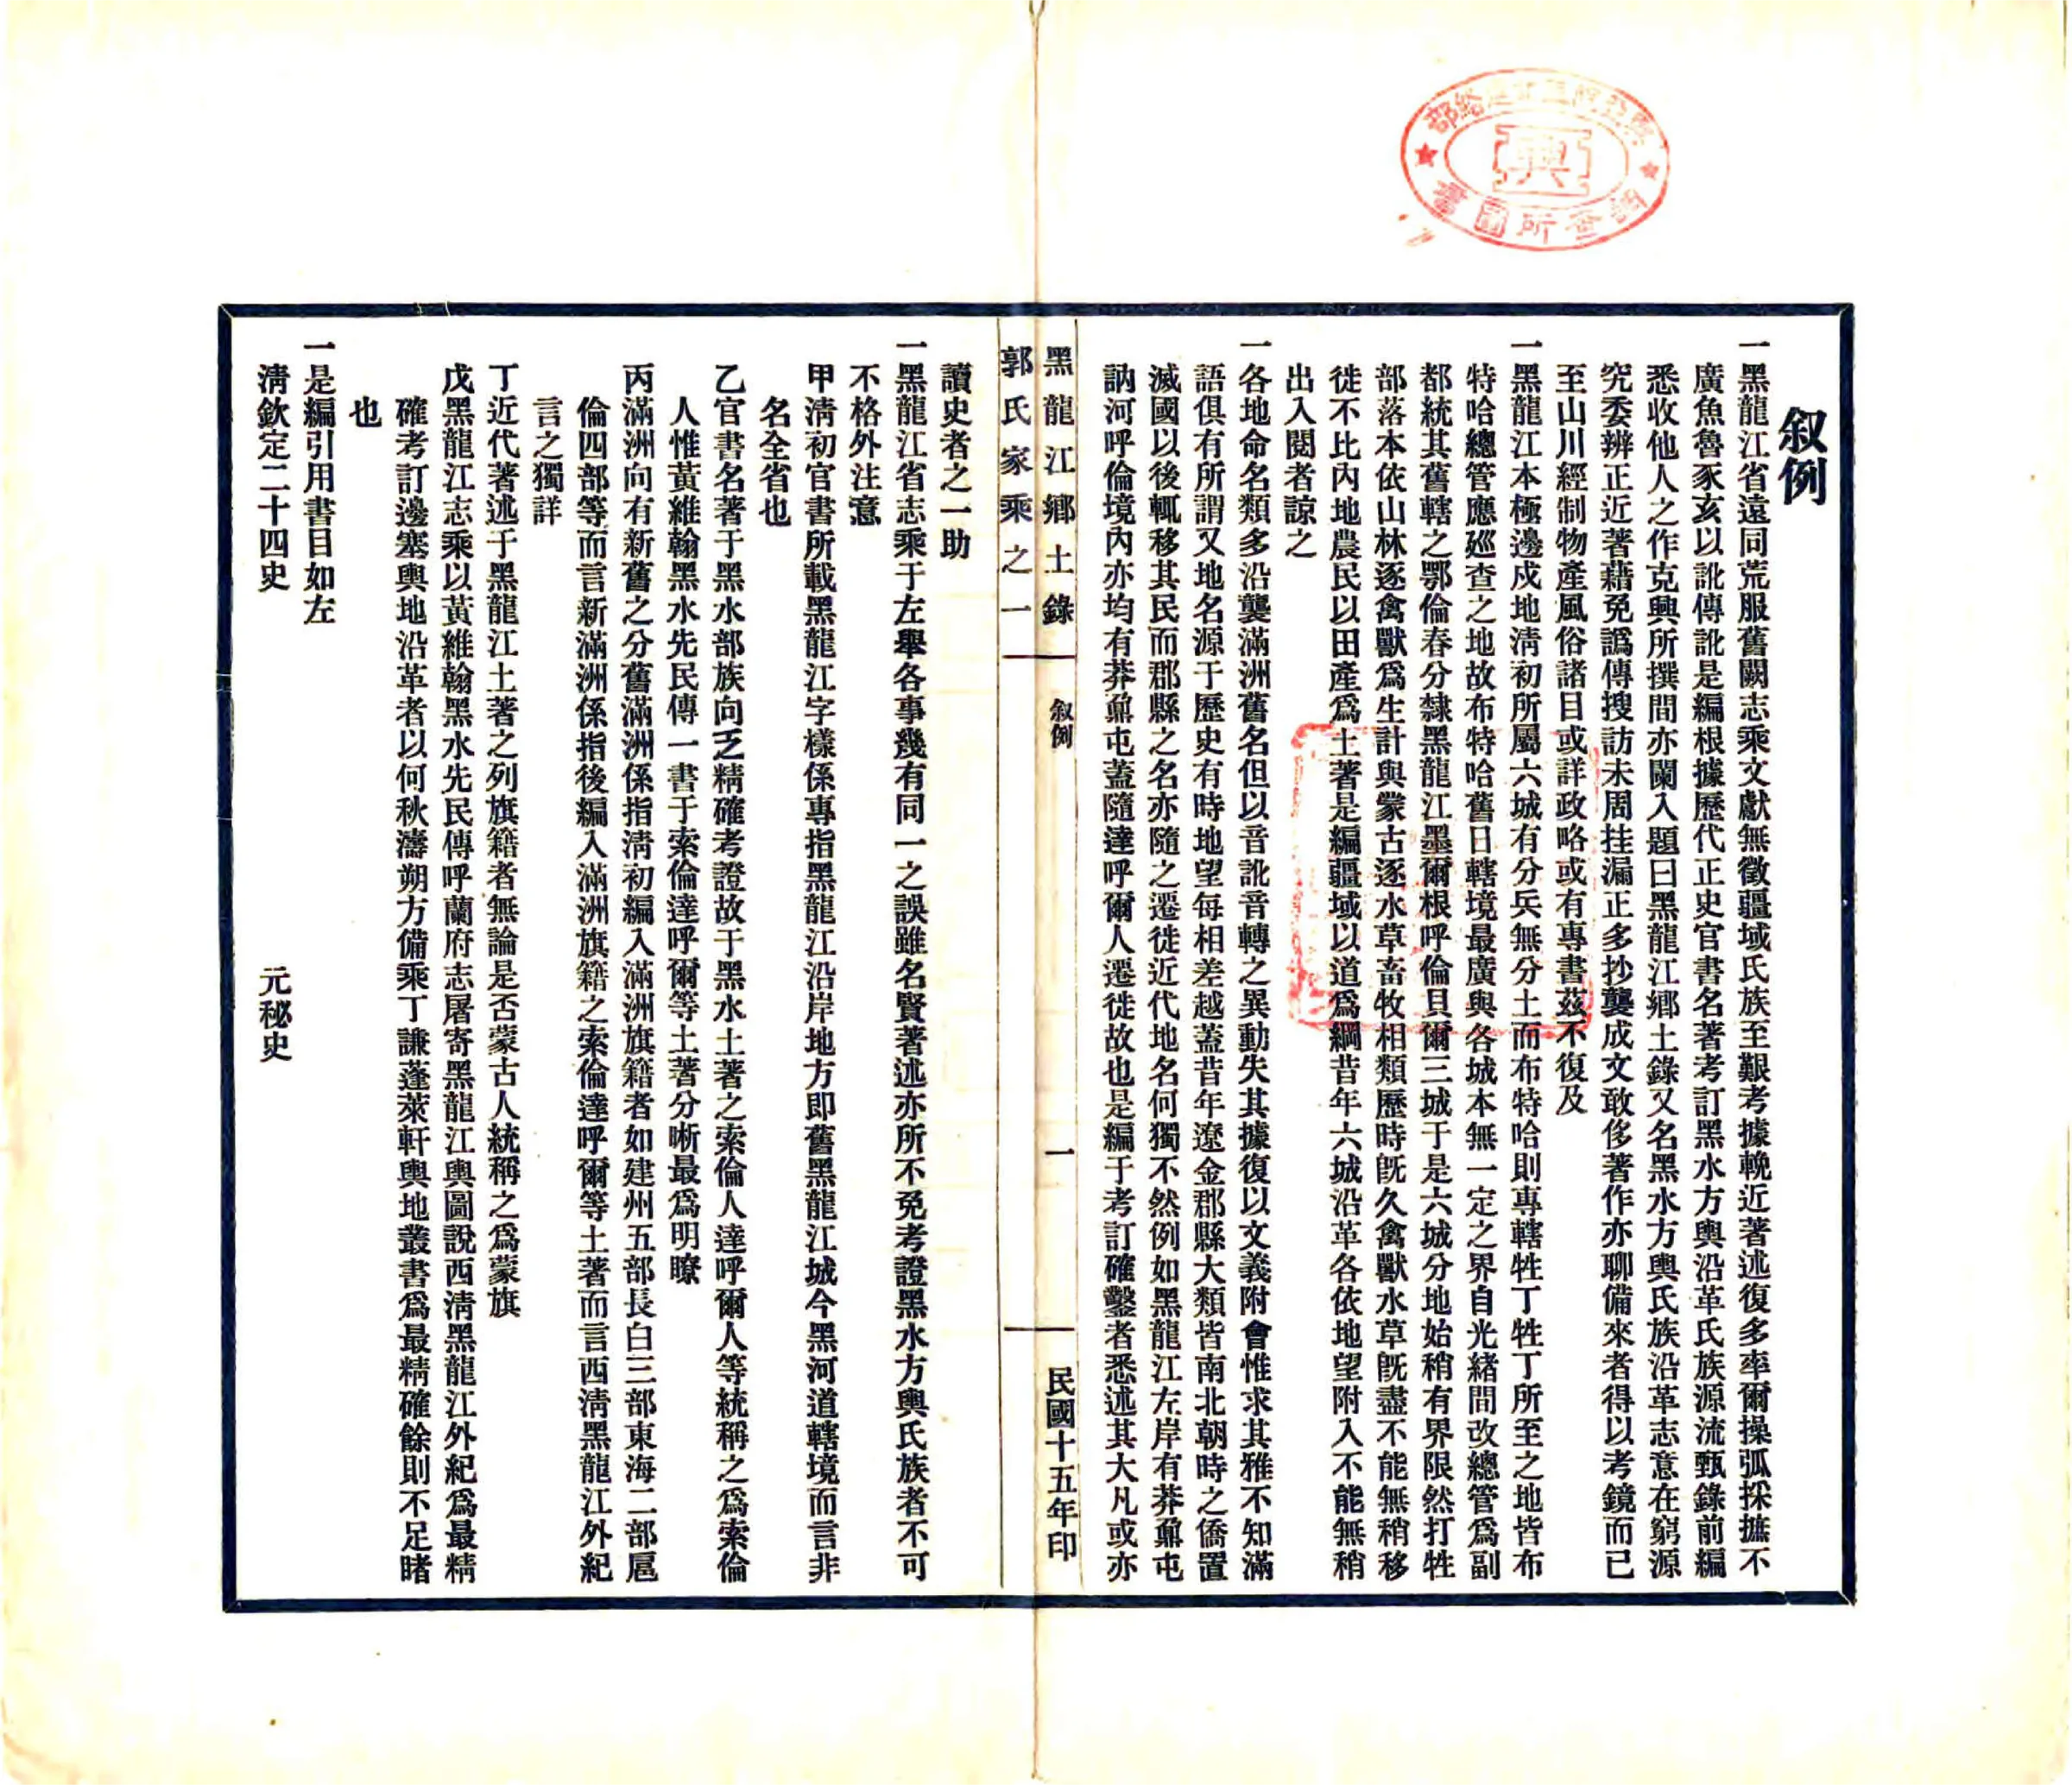 叙例
一黑龍江省遠同荒服舊闕志乘文獻無徵疆域氏族至艱考據輓近著述復多率爾操弧採摭不
廣魚魯豕亥以訛傳訛是編根據歷代正史官書名著考訂黑水方輿沿革氏族源流甄錄前編
悉收他人之作克興所撰間亦闌入題曰黑龍江鄉土錄又名黑水方輿氏族沿革志意在窮源
究委辨正近著藉免譌傳搜訪未周挂漏正多抄襲成文敢侈著作亦聊備來者得以考鏡而已
至山川經制物產風俗諸目或詳政略或有專書茲不復及
一黑龍江本極邊戍地淸初所屬六城有分兵無分土而布特哈則專轄牲丁牲丁所至之地皆布
特哈總管應廵查之地故布特哈舊日轄境最廣與各城本無一定之界自光緒間改總管爲副
都統其舊轄之鄂倫春分隸黑龍江墨爾根呼倫貝爾三城于是六城分地始稍有界限然打牲
部落本依山林逐禽獸爲生計與蒙古逐水草畜牧相類歷時旣久禽獸水草旣盡不能無稍移
徙不比內地農民以田產爲土著是編疆域以道爲綱昔年六城沿革各依地望附入不能無稍
出入閱者諒之
一各地命名類多沿襲滿洲舊名但以音訛音轉之異動失其據復以文義附會惟求其雅不知滿
語俱有所謂又地名源于歷史有時地望每相差越蓋昔年遼金郡縣大類皆南北朝時之僑置
滅國以後輒移其民而郡縣之名亦隨之遷徙近代地名何獨不然例如黑龍江左岸有莽鼐屯
訥河呼倫境內亦均有莽鼐屯蓋隨達呼爾人遷徙故也是編于考訂確鑿者悉述其大凡或亦
黑龍江鄉土錄 叙例 一 民國十五年印
郭氏家乘之一
讀史者之一助
一黑龍江省志乘于左舉各事幾有同一之誤雖名賢著述亦所不免考證黑水方輿氏族者不可
不格外注意
甲淸初官書所載黑龍江字樣係專指黑龍江沿岸地方即舊黑龍江城今黑河道轄境而言非
名全省也
乙官書名著于黑水部族向乏精確考證故于黑水土著之索倫人達呼爾人等統稱之爲索倫
人惟黃維翰黑水先民傳一書于索倫達呼爾等土著分晰最爲明瞭
丙滿洲向有新舊之分舊滿洲係指淸初編入滿洲旗籍者如建州五部長白三部東海二部扈
倫四部等而言新滿洲係指後編入滿洲旗籍之索倫達呼爾等土著而言西淸黑龍江外紀
言之獨詳
丁近代著述于黑龍江土著之列旗籍者無論是否蒙古人統稱之爲蒙旗
戊黑龍江志乘以黃維翰黑水先民傳呼蘭府志屠寄黑龍江輿圖說西淸黑龍江外紀爲最精
確考訂邊塞輿地沿革者以何秋濤朔方備乘丁謙蓬萊軒輿地叢書爲最精確餘則不足睹
也
一是編引用書目如左
淸欽定二十四史 元秘史